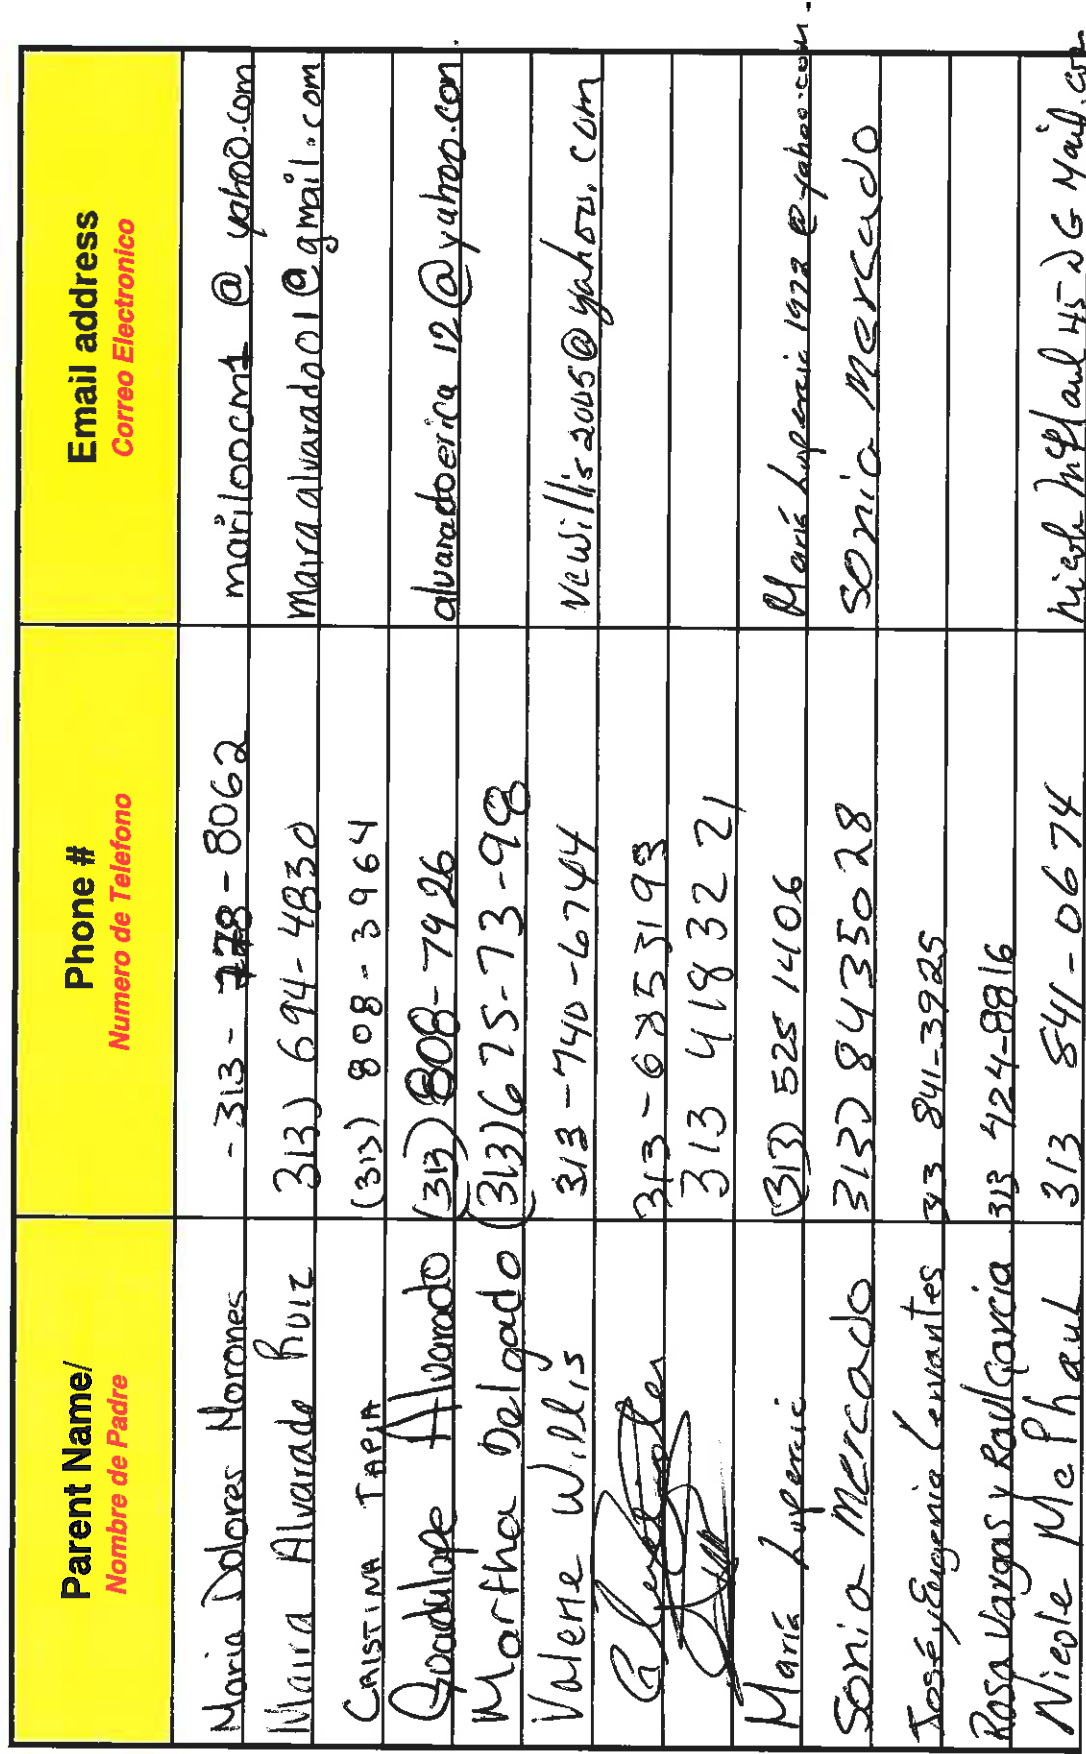 Parent Name/ Phone # Email address
Nombre de Padre Numero de Telefono Correo Electronico
Maria Dolores Morones -313-778-8062 mariloocm1@yahoo.com
Maira Alvarado Ruiz 313) 694-4830 mairaalvarado01@gmail.com
CRISTINA TAPIA (313) 808-3964
Guadulope Alvarado (313) 808-7926 alvaradoerica12@yahoo.com
Martha Delgado (313)675-73-98
Valerie Willis 313-740-6744 vcwillis2005@yahoo.com
313-6753193
313 418 32 21
María Luperic (313) 525 1406
Sonia Mercado 313) 8435028 Sonia Mercado
José y Eugenia Cervantes 313 841-3925
Rosa Vargas y Raul Garcia 313 424-8816
Nicole McPhaul 313 841-0674